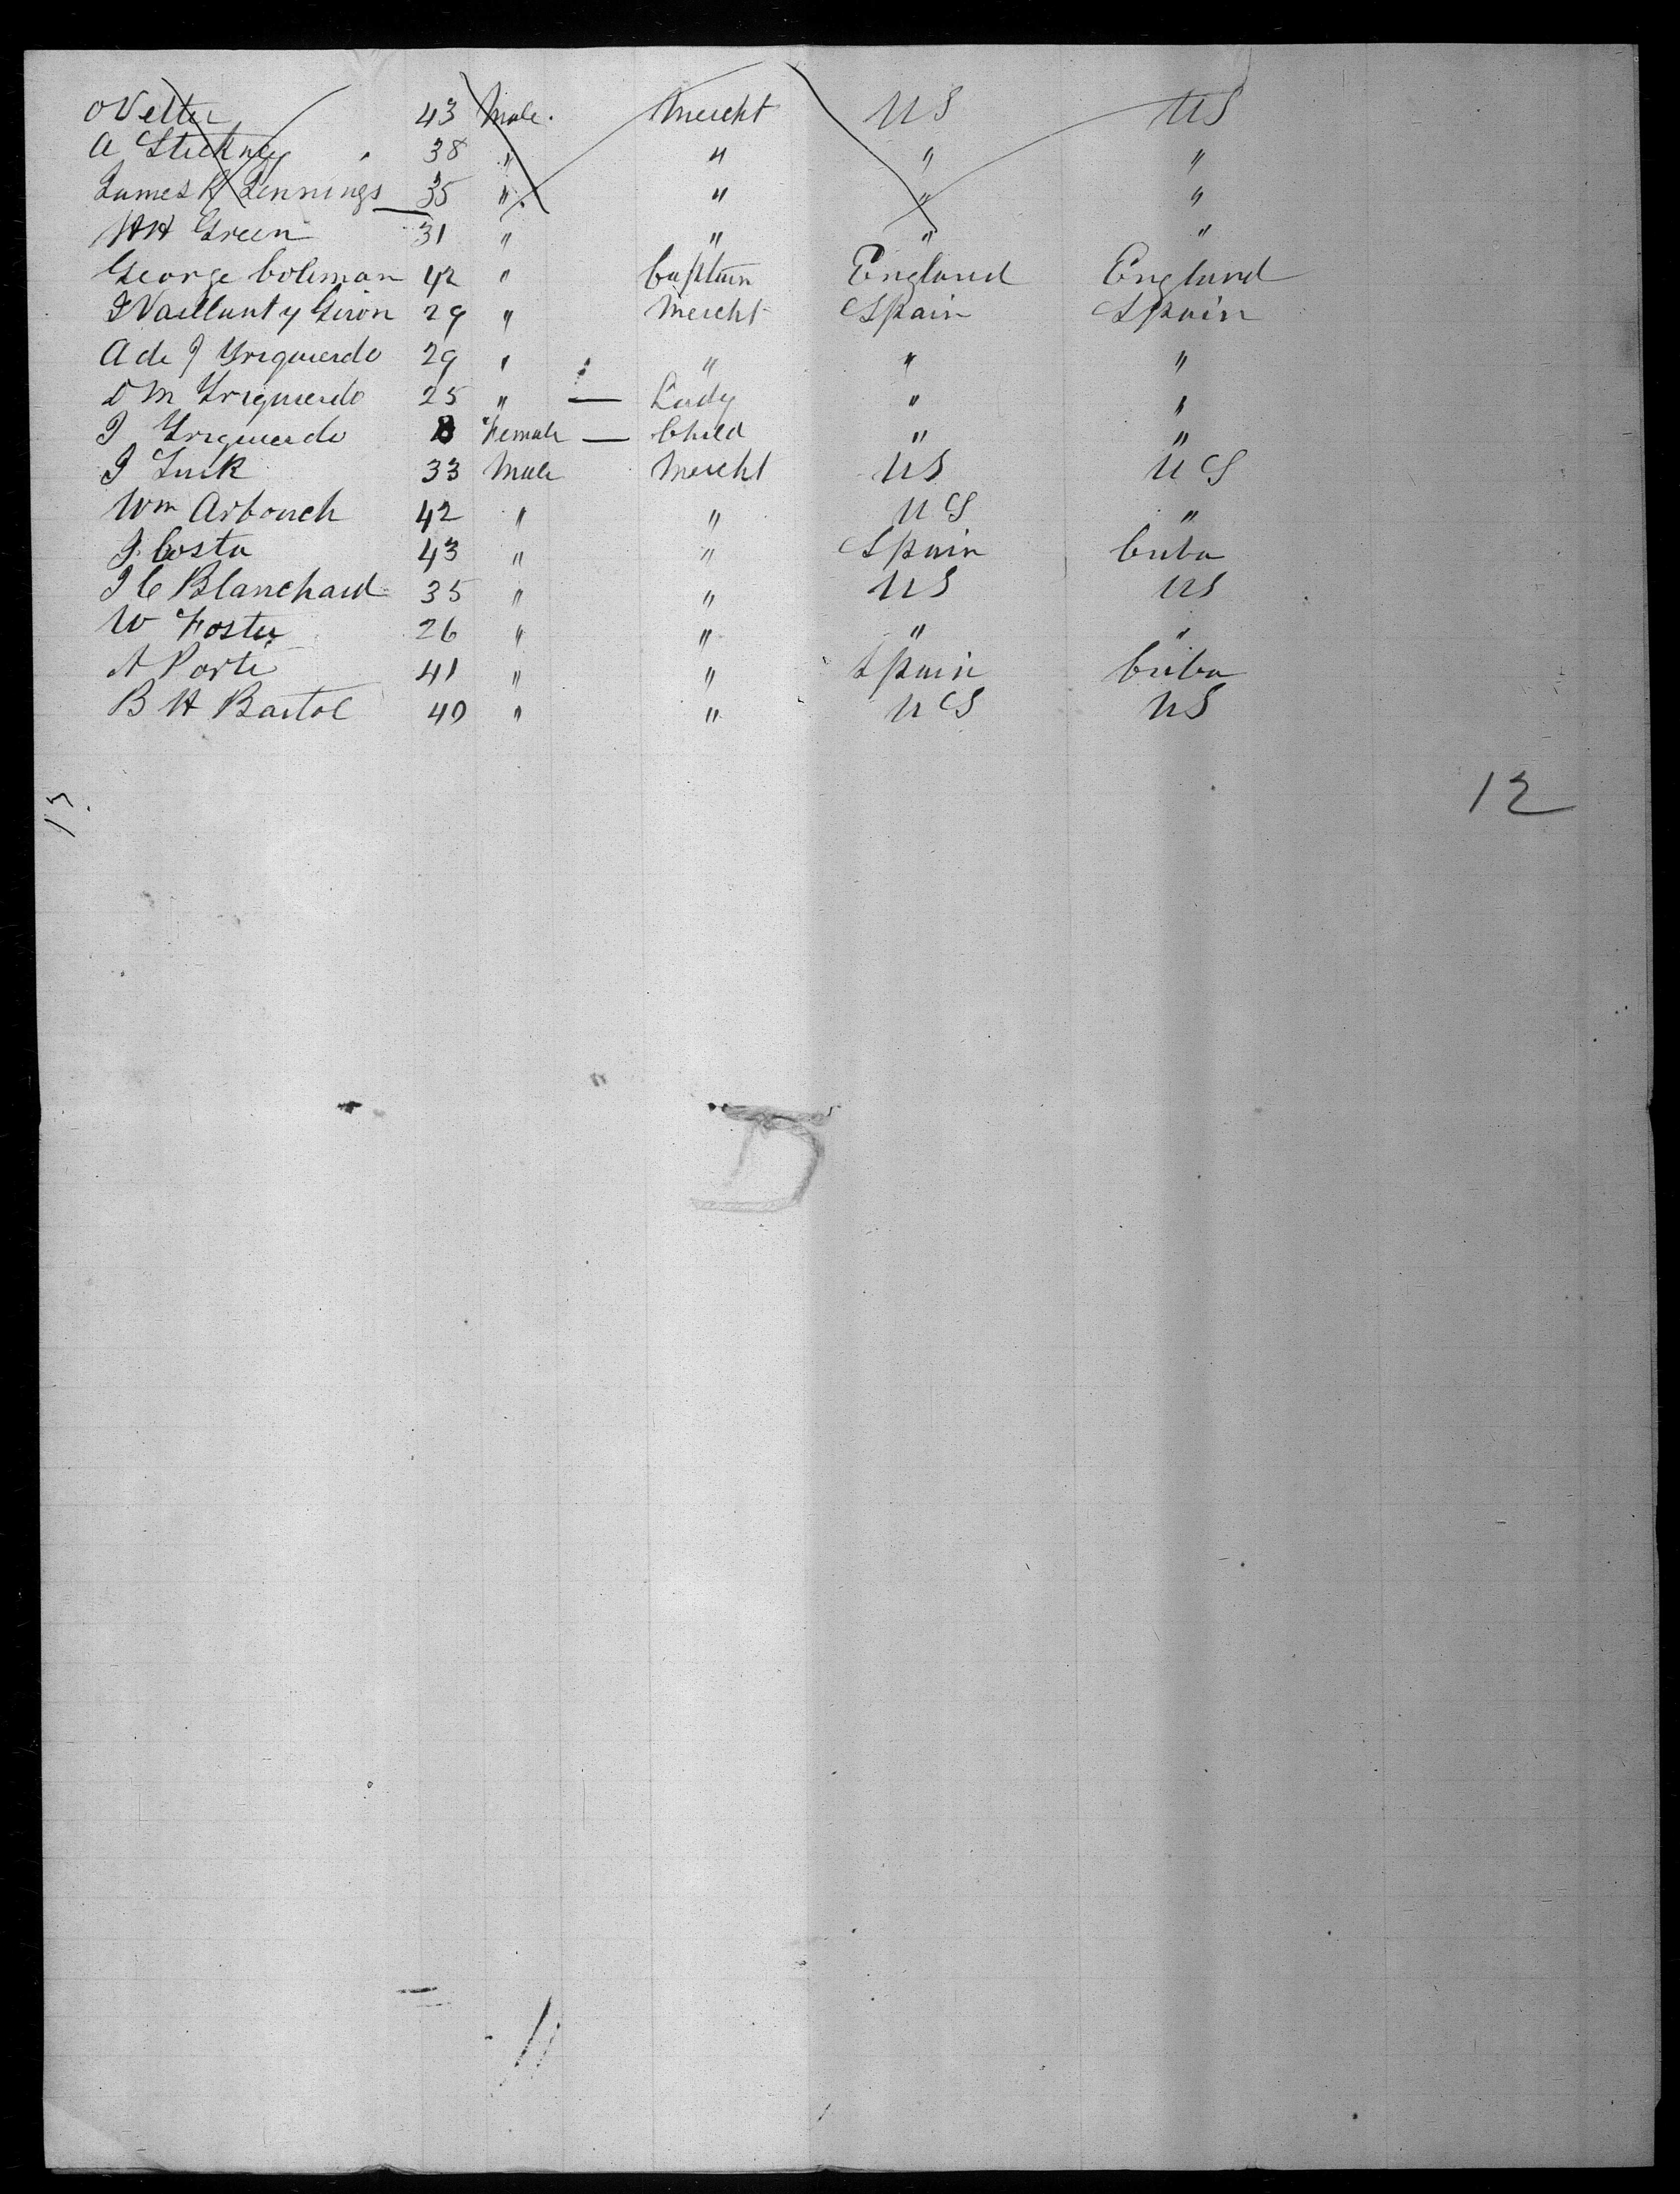 O Vetter 43 Male. Mercht US US
A Stickney 38 " " " "
James R Jennings 35 " " " "
HH Green 31 " " " "
George Coleman 42 " Captain England England
J Vaillant y Giron 29 " Mercht Spain Spain
A de J Yrizquierdo 29 " " " "
D M Yrizquierdo 25 " — Lady " "
J Yrizquierdo 8 Female — Child " "
J Luck 33 Male Mercht US US
Wm Arbouch 42 " " US "
J. Costa 43 " " Spain Cuba
J C Blanchard 35 " " US US
W Foster 26 " " " "
A Porte 41 " " Spain Cuba
B H Bartol 40 " " US US
13.
12